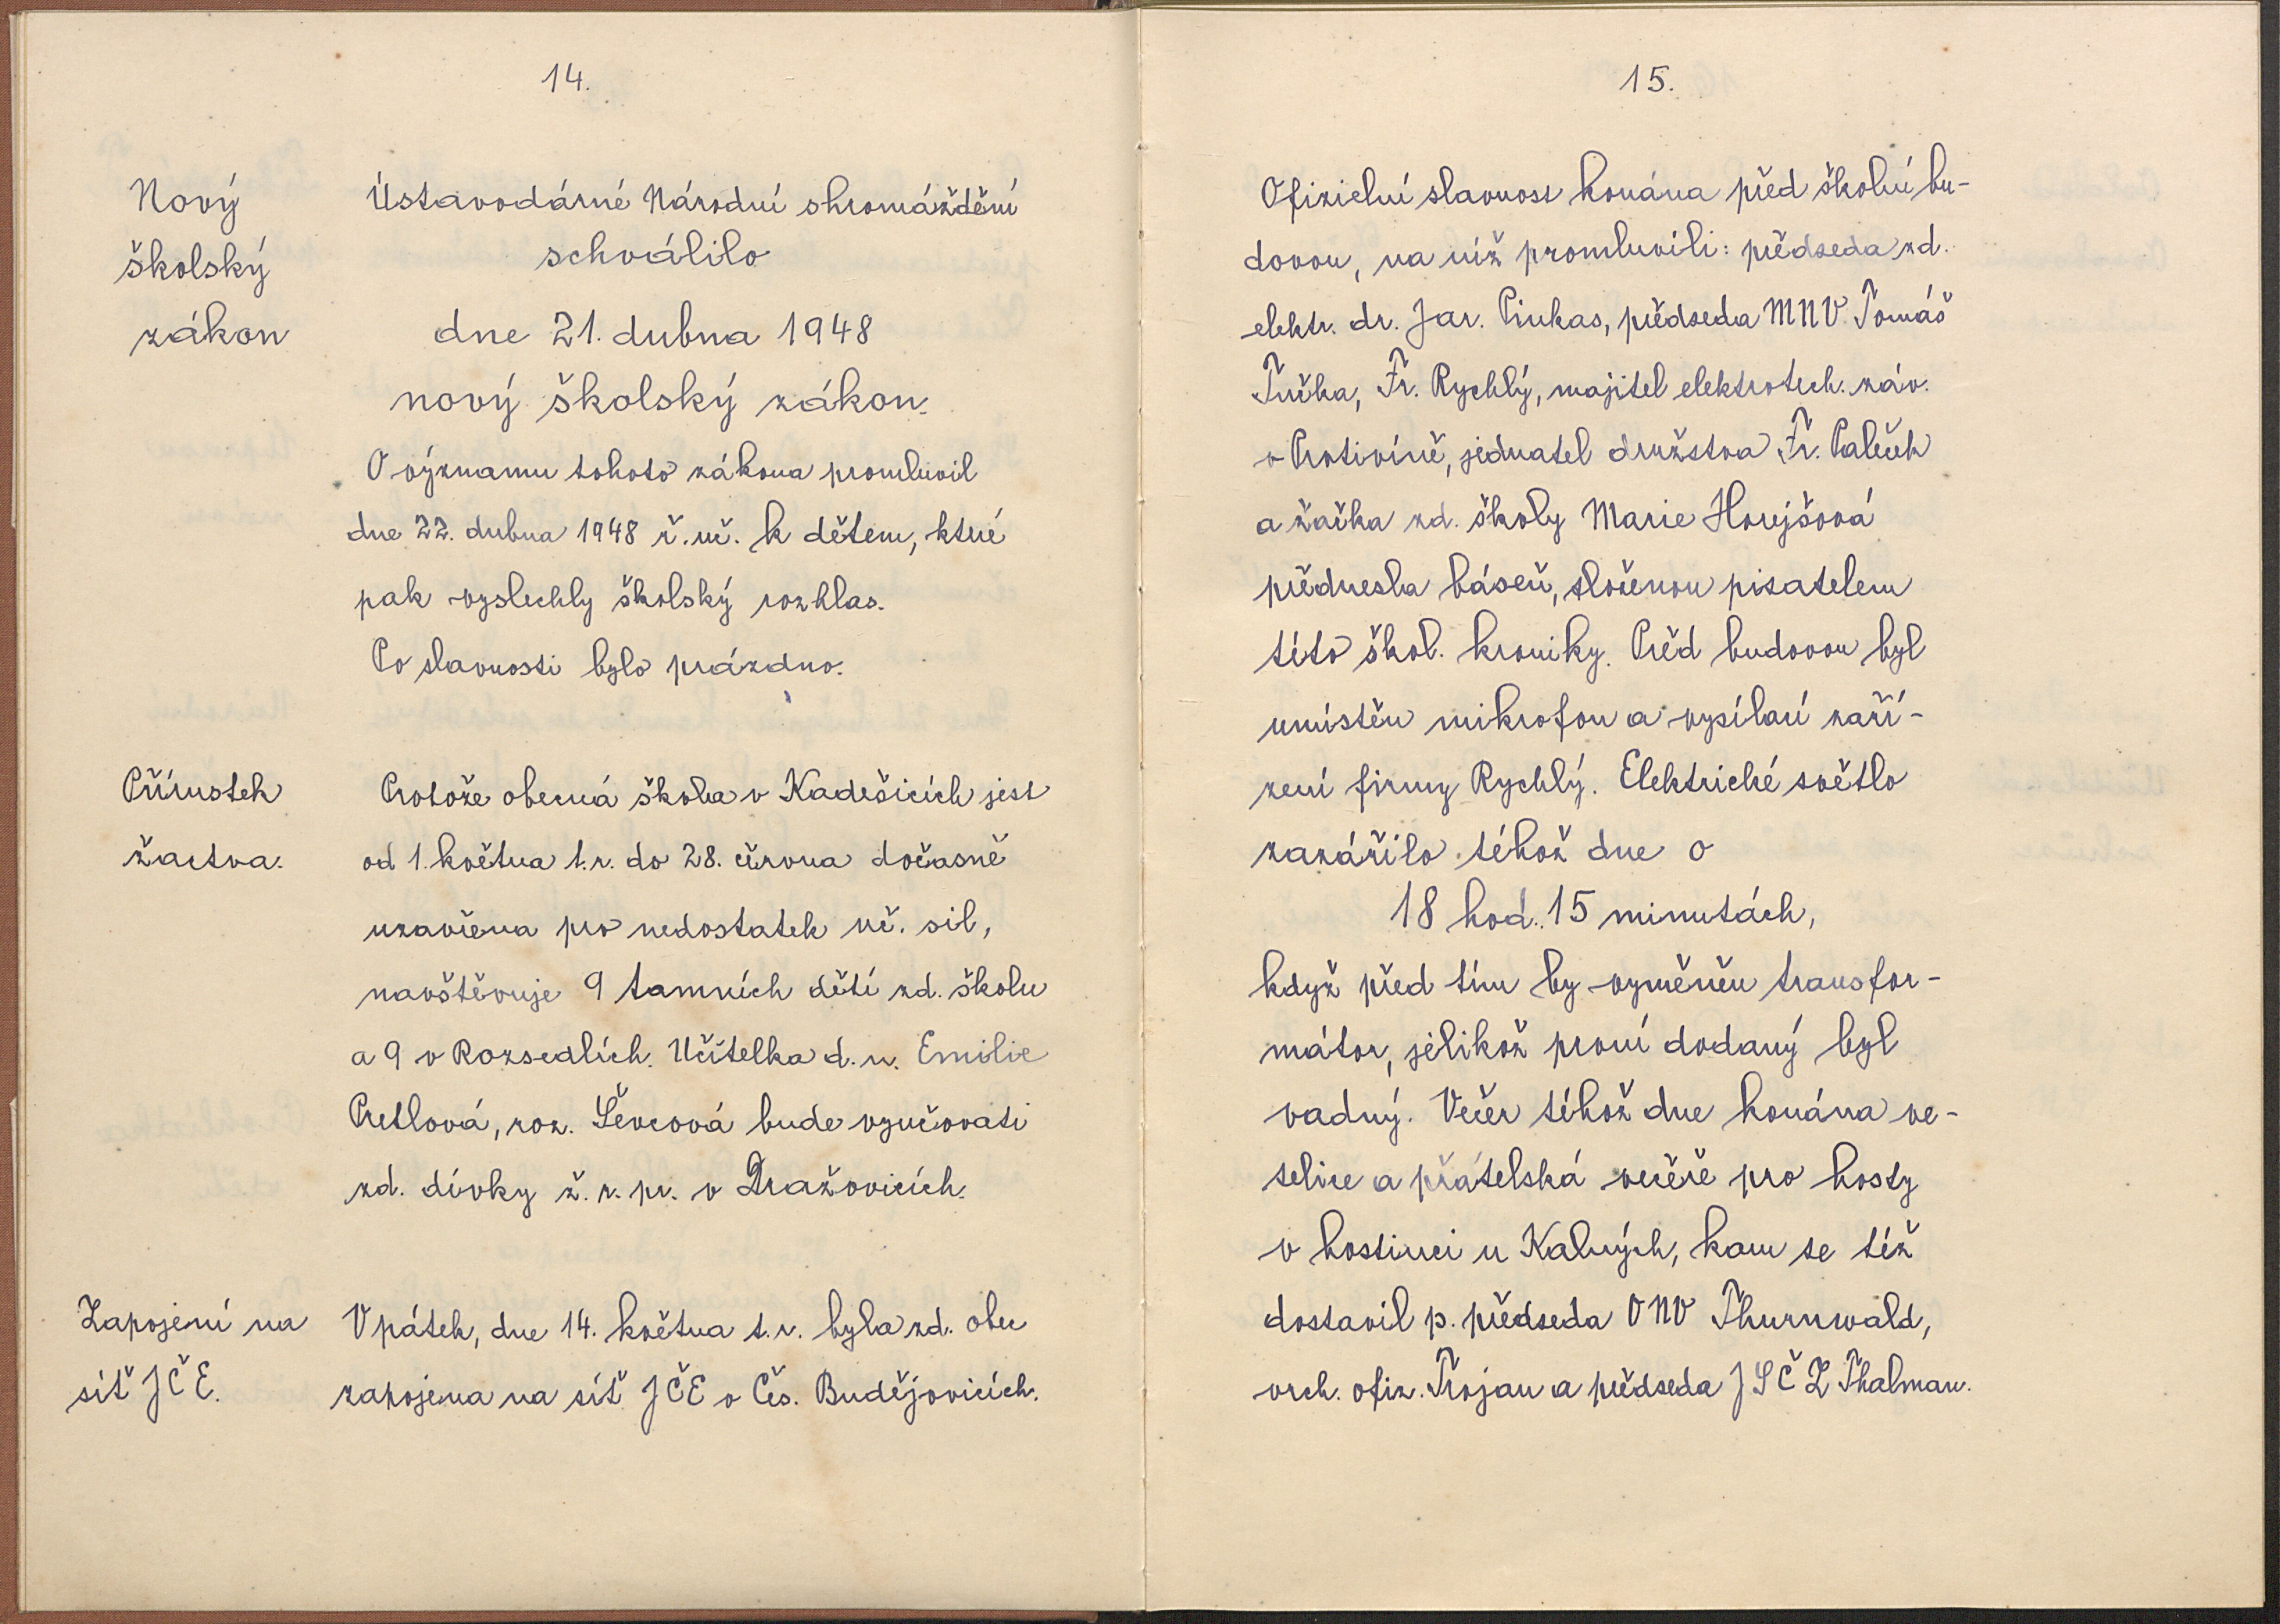 14.
Nový
školský
zákon
Ústavodárné Národní shromáždění
schválilo
dne 21. dubna 1948
nový školský zákon.
O významu tohoto zákona promluvil
dne 22. dubna 1948 ř. uč. k dětem, které
pak vyslechly školský rozhlas.
Po slavnosti bylo prázdno.
Přírustek
žactva.
Protože obecná škola v Kadešicích jest
od 1. května t.r. do 28. června dočasně
uzavřena pro nedostatek uč. sil,
navštěvuje 9 tamních dětí zd. školu
a 9 v Rozsedlích. Učitelka d. n. Emilie
Pretlová, roz. Ševcová bude vyučovati
zd. dívky ž. r. pr. v Dražovicích.
Zapojení na
síť JČE.
V pátek, dne 14. května t.r. byla zd. obec
zapojena na síť JČE v Čes. Budějovicích.
15.
Oficielní slavnost konána před školní bu-
dovou, na níž promluvili: předseda zd.
elektr. dr. Jar. Pinkas, předseda MNV Tomáš
Tučka, Fr. Rychlý, majitel elektrotech. záv.
v Protivíně, jednatel družstva Fr. Paleček
a žačka zd. školy Marie Horejšová
přednesla báseň, složenou pisatelem
této škol. kroniky. Před budovou byl
umístěn mikrofon a vysílací zaří-
zení firmy Rychlý. Elektrické světlo
zazářilo téhož dne o
18 hod. 15 minutách,
když před tím by vyměněn transfor-
mátor, jelikož první dodaný byl
vadný. Večer téhož dne konána ve-
selice a přátelská večeře pro hosty
v hostinci u Kalných, kam se též
dostavil p. předseda ONV Thurnwald,
vrch. ofic. Trojan a předseda JSČZ Thalman.